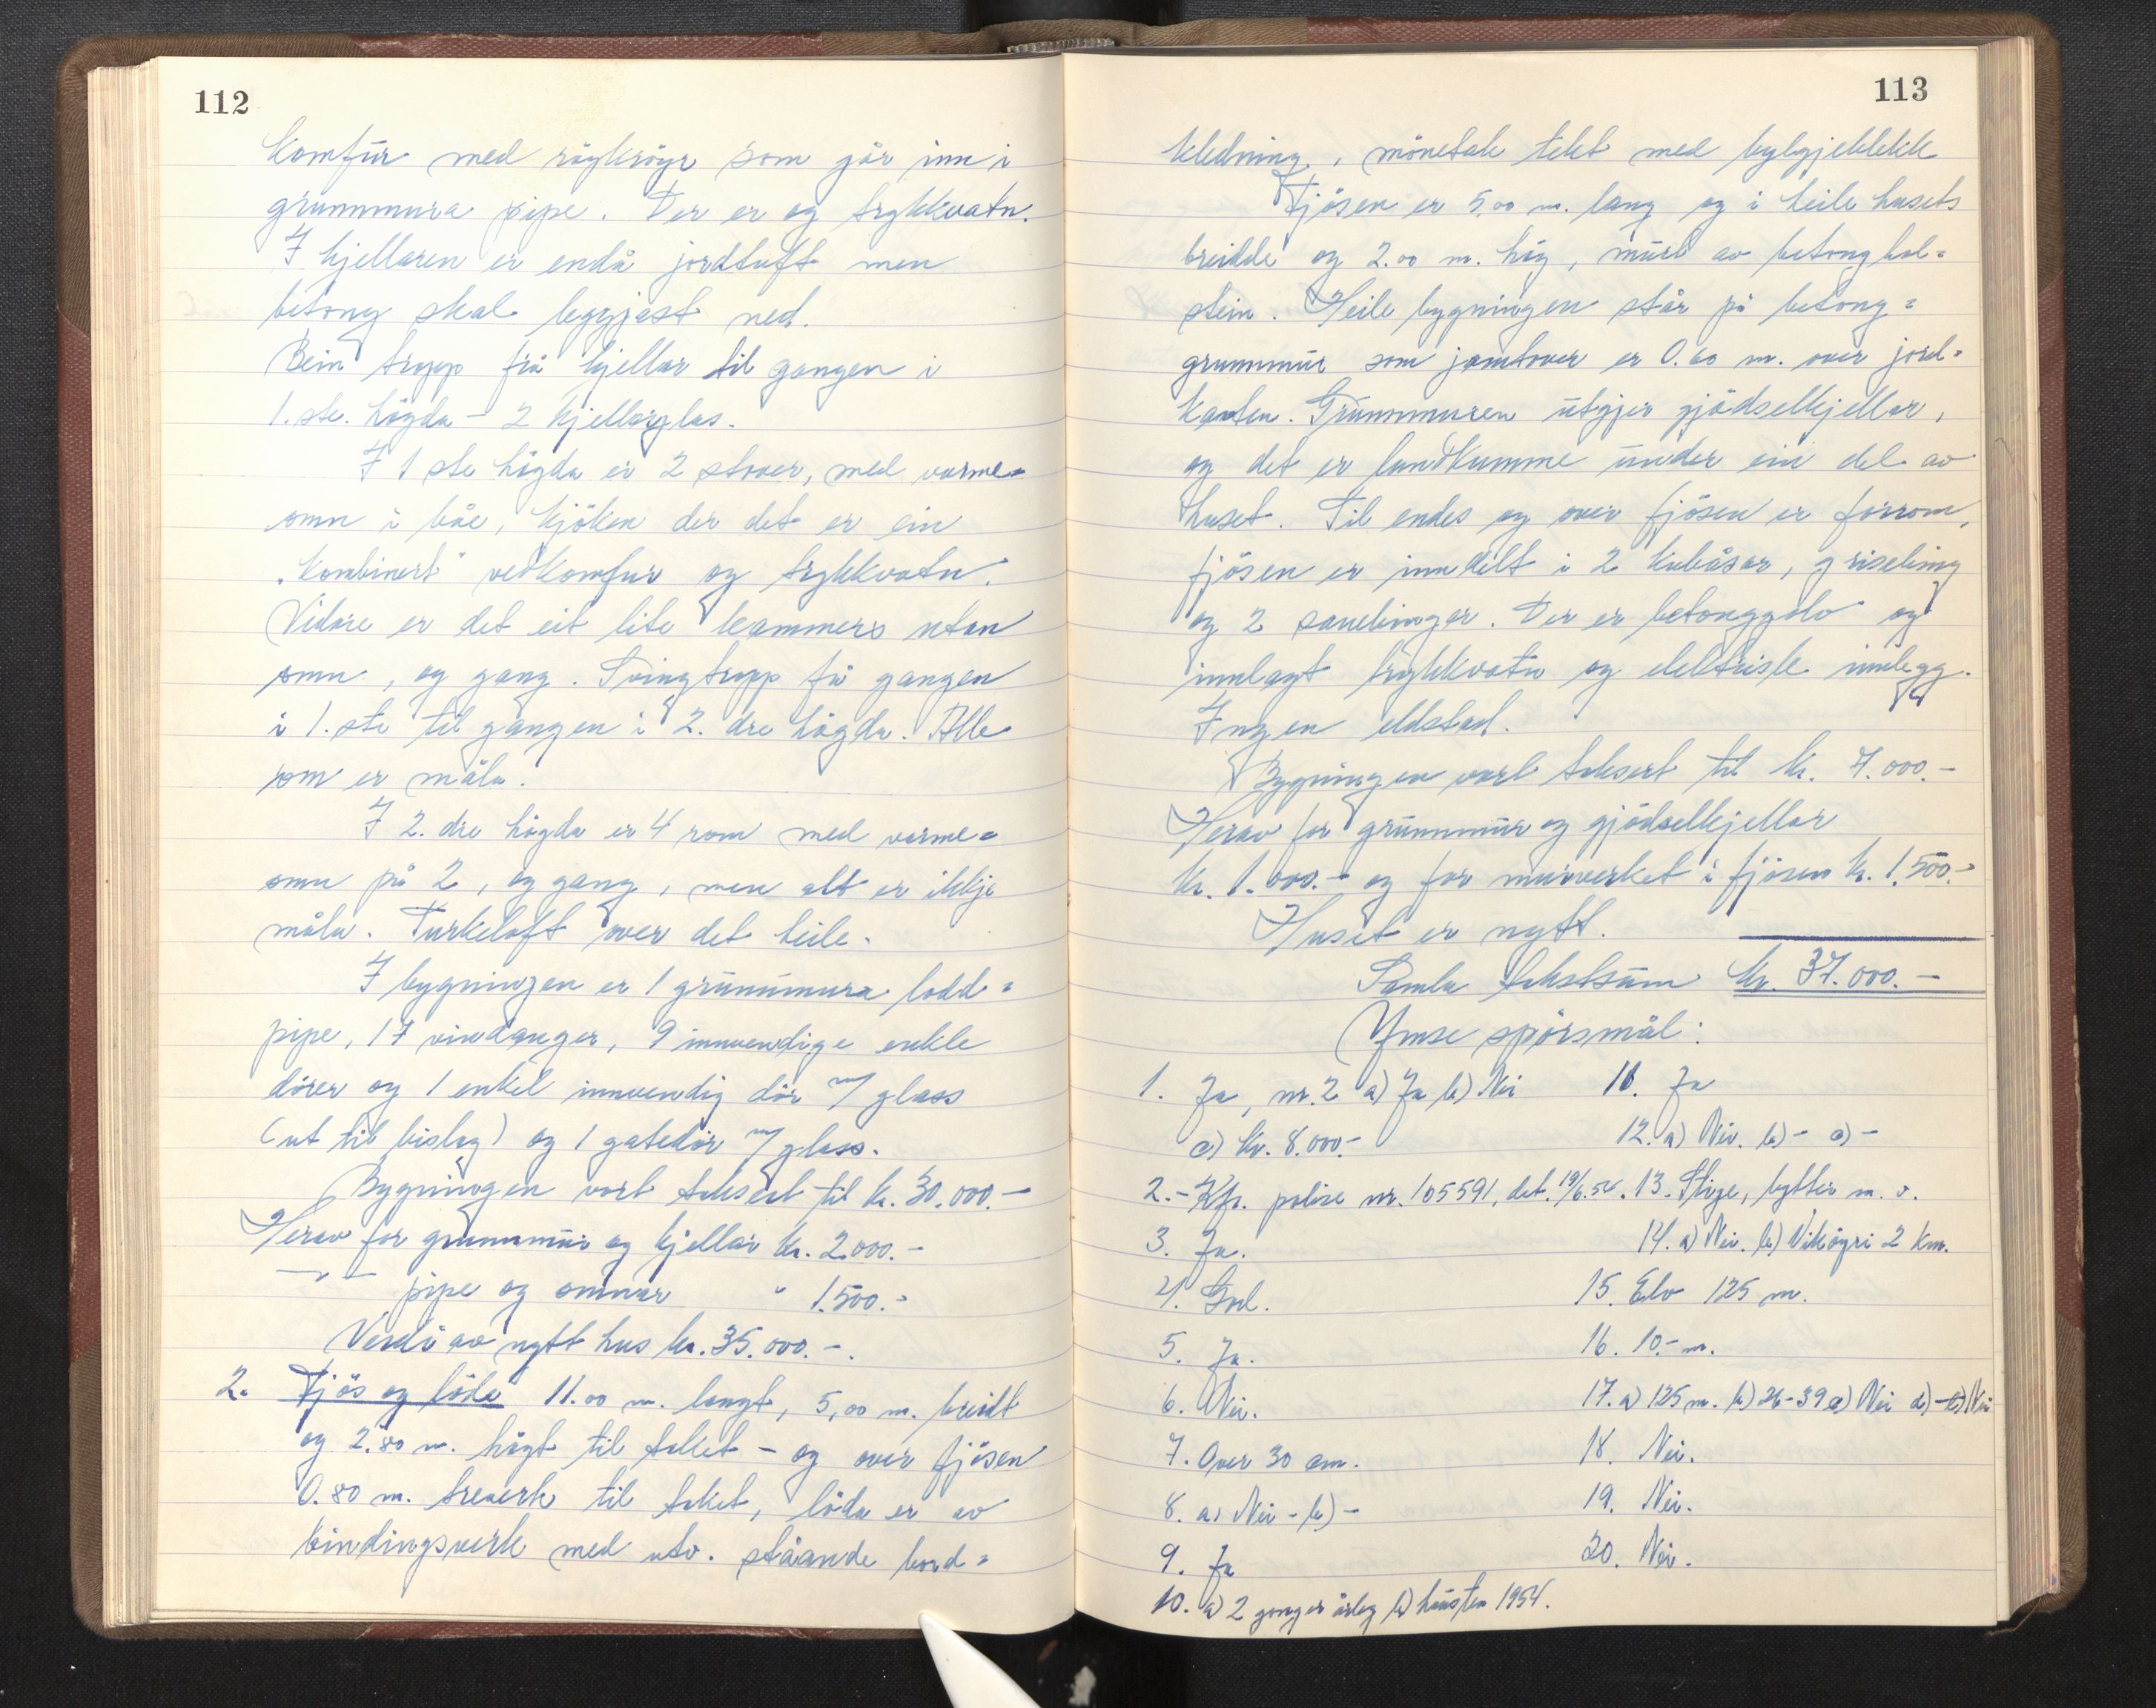 112
Komfur med röykröyr som går inn i
grunnmura pipe. Der er og trykkvatn.
I kjellaren er endå jordtuft men
betong skal leggjast ned.
Bein tropp frå kjellar til gangen i
1.ste. högda - 2 kjellarglas.
I 1 ste högda er 2 stover, med varme=
omn i båe, kjöken der det er ein
"kombinert" vedkomfur og trykkvatn.
Vidare er det eit lite kammers utan
omn, og gang. Svingtropp frå gangen
i 1.ste til gangen i 2. dre högda. Alle
rom er måla.
I 2. dre högda er 4 rom med varme=
omn på 2, og gang, men alt er ikkje
måla. Turkeloft over det heile.
I bygningen er 1 grunnmura lodd=
pipe, 17 vindauger, 9 innvendige enkle
dörer og 1 enkel innvendig dör m/glass
(ut til bislag) og 1 gatedör m/glass.
Bygningen vart taksert til kr. 30.000.-
Herav for grunnmur og kjellar kr. 2.000.-
-"- pipe og omnar " 1.500.-
Verdi av nytt hus kr. 35.000.-.
2. Fjös og löda 11.00 m. langt, 5,00 m. breidt
og 2.80 m. högt til taket - og over fjösen
0.80 m. treverk til taket, löda er av
bindingsverk med utv. ståande bord=
113
kledning, mönetak tekt med bylgjeblekk
Fjösen er 5,00 m. lang og i heile husets
breidde og 2.00 m. höy, murt av betonghol=
stein. Heile bygningen står på betong=
grunnmur som jamtover er 0.60 m. over jord=
kanten. Grunnmuren utgjer gjödselkjellar,
og det er landkumme under ein del av
huset. Til endes og over fjösen er fôrrom,
fjösen er inndelt i 2 kubåsar, grisebing
og 2 sauebingar. Der er betonggolv og
innlagt trykkvatn og elektrisk innlegg.
Ingen eldstad.
Bygningen vart taksert til kr. 7.000.-
Herav for grunnmur og gjödselkjellar
kr. 1.000.- og for murverket i fjösen kr. 1.500.-
Huset er nytt.
Samla takstsum kr. 37.000.-
Ymse spörsmål:
1. Ja, nr. 2 a) Ja b) Nei
c) kr. 8.000.-
2.- Kfr. polise nr. 105591, dat. 19/6.54.
3. Ja.
4. God.
5. Ja.
6. Nei.
7. Over 30 cm.
8. a) Nei - b) -
9. Ja
10. a) 2 gonger årleg b) hausten 1954.
11. Ja
12. a) Nei. b) - c) -
13. Stige, bytter m. v.
14. a) Nei. b) Viköyri 2 km.
15. Elv 125 m.
16. 10.- m.
17. a) 125 m. b) 26-39 c) Nei d) - e) Nei
18. Nei.
19. Nei.
20. Nei.